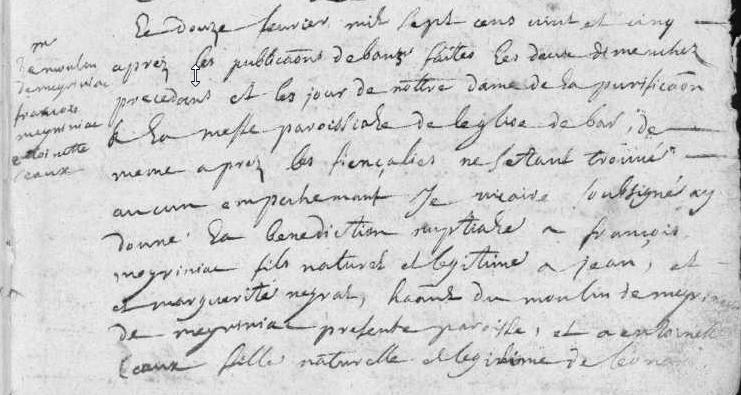 m
du moulin
de meyriniac
françois
meyriniac
et toinette
Ceaux
Le douze fevrier mil sept cens vint et cinq
aprez les publicaõns de bans faites les deux dimenches
precedans et les jour de nottre dame de la purificaõn
a la messe paroissiale de leglise de bar, de
meme aprez les fiençalies ne settant trouvé
aucun empechemant Je vicaire soubsigné ay
donné la benediction nuptiale a françois
meyriniac fils naturel et legitime a jean, et
et marguerite negrat, haans du moulin de meyriniac
de meyriniac presente paroisse, et a antoinette
Ceaux fille naturelle et legitime de